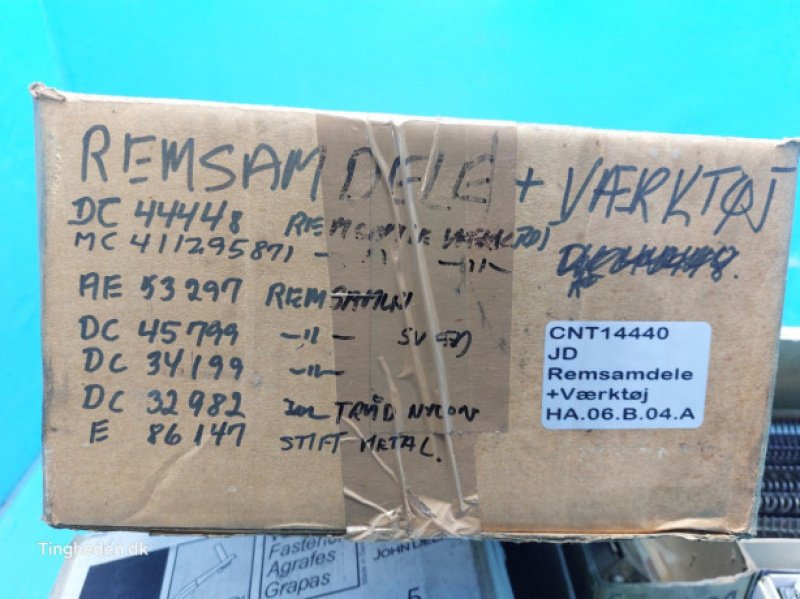 REMSAMDELE + VÆRKTØJ
DC 44448 REMSAMLE VÆRKTØJ
MC 411295871 -"- -"-
AE 53297 REMSAML
DC 45799 -"-
DC 34199 -"-
DC 32982 TRÅD NYLON
E 86147 STIFT METAL.
CNT14440
JD
Remsamdele
+Værktøj
HA.06.B.04.A
Tingheden.dk
Agrafes
Grapas
5